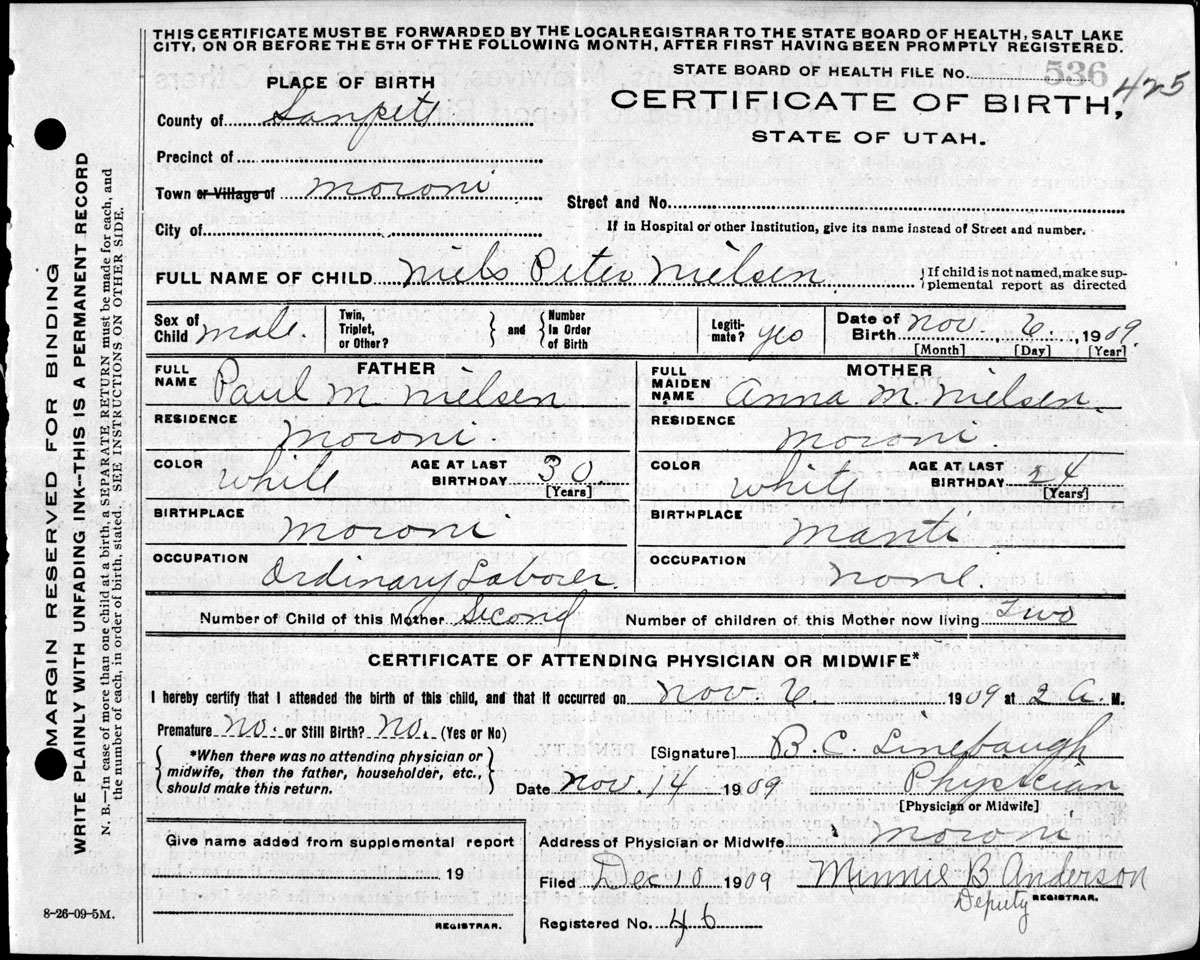 THIS CERTIFICATE MUST BE FORWARDED BY THE LOCALREGISTRAR TO THE STATE BOARD OF HEALTH, SALT LAKE
CITY, ON OR BEFORE THE 5TH OF THE FOLLOWING MONTH, AFTER FIRST HAVING BEEN PROMPTLY REGISTERED.
STATE BOARD OF HEALTH FILE No. 536 425
PLACE OF BIRTH
CERTIFICATE OF BIRTH,
STATE OF UTAH.
County of Sanpete
Precinct of
Town or Village of Moroni
Street and No.
City of
If in Hospital or other Institution, give its name instead of Street and number.
FULL NAME OF CHILD Niels Peter Nielsen
{If child is not named, make sup-
plemental report as directed
Sex of Child male.
Twin, Triplet, or Other? } and { Number In Order of Birth
Legiti-mate? yes
Date of Birth Nov. 6, 1909.
[Month] [Day] [Year]
FATHER
FULL NAME Paul M. Nielsen
MOTHER
FULL MAIDEN NAME Anna M. Nielsen.
RESIDENCE Moroni
RESIDENCE Moroni.
COLOR White AGE AT LAST BIRTHDAY 30. [Years]
COLOR White AGE AT LAST BIRTHDAY 24 [Years]
BIRTHPLACE Moroni
BIRTHPLACE Manti
OCCUPATION Ordinary Laborer.
OCCUPATION None.
Number of Child of this Mother Second
Number of children of this Mother now living Two
CERTIFICATE OF ATTENDING PHYSICIAN OR MIDWIFE*
I hereby certify that I attended the birth of this child, and that it occurred on Nov 6. 1909 at 2 A. M.
Premature No. or Still Birth? No. (Yes or No)
[Signature] B. C. Linebaugh
*When there was no attending physician or
midwife, then the father, householder, etc.,
should make this return.
Date Nov. 14 1909
Physician
[Physician or Midwife]
Give name added from supplemental report
19
REGISTRAR.
Address of Physician or Midwife Moroni
Filed Dec 10 1909 Minnie B Anderson
Deputy REGISTRAR.
Registered No. 46
8-26-09-5M.
MARGIN RESERVED FOR BINDING
WRITE PLAINLY WITH UNFADING INK--THIS IS A PERMANENT RECORD
N. B.—In case of more than one child at a birth, a SEPARATE RETURN must be made for each, and
the number of each, in order of birth, stated. SEE INSTRUCTIONS ON OTHER SIDE.